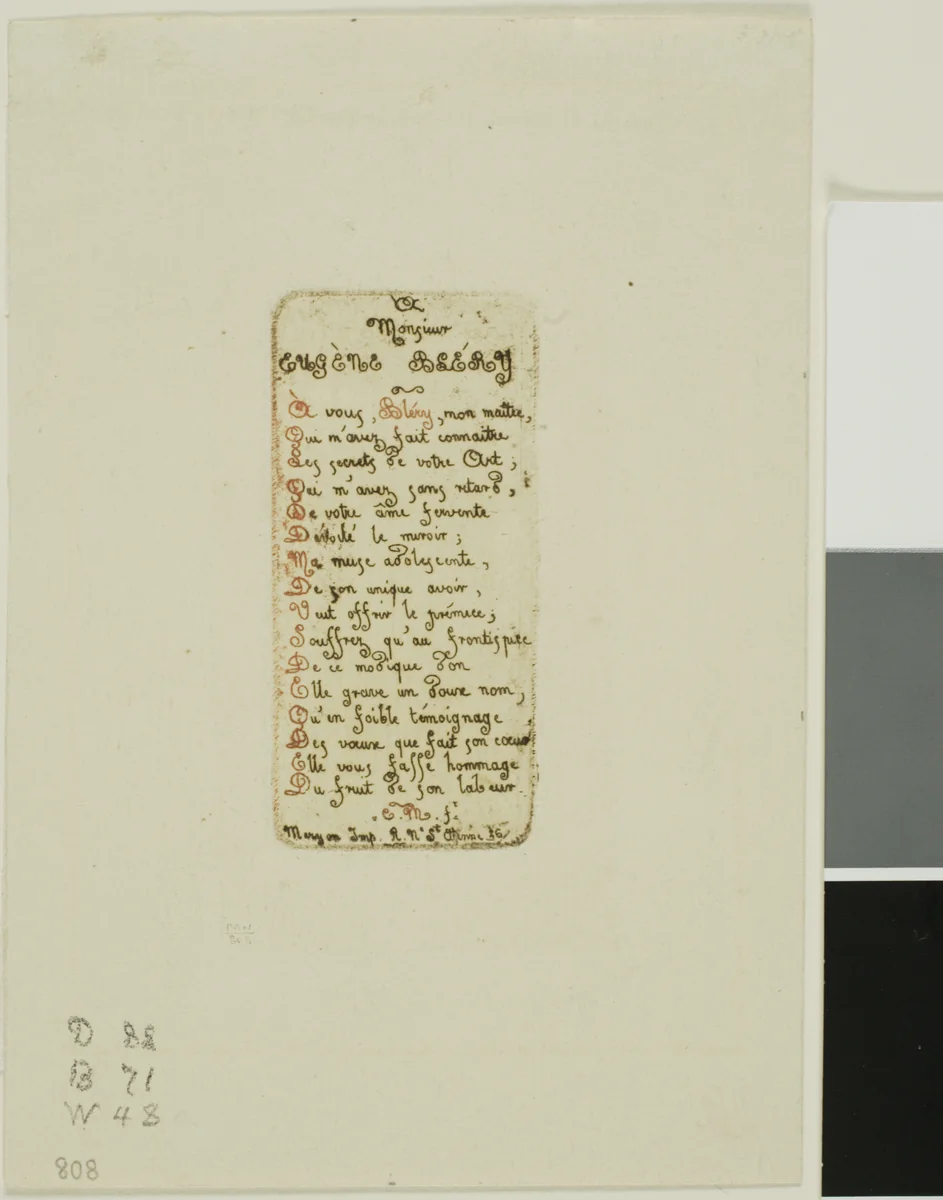 A
Monsieur
EUGÈNE BLÉRY
À vous, Bléry, mon maître,
Qui m'avez fait connaitre
Les secrets de votre Art;
Qui m'avez sans retard,
De votre âme fervente
Dévoilé le miroir;
Ma muse adolescente,
De son unique avoir,
Veut offrir le prémice;
Souffrez qu'au frontispice
De ce modique don
Elle grave un doux nom,
Qu'en foible témoignage
Des vœux que fait son cœur
Elle vous fasse hommage
Du fruit de son labeur.
C.M. f.
Meryon Imp. R. Nve St Etienne
D 88
B 71
W 48
808